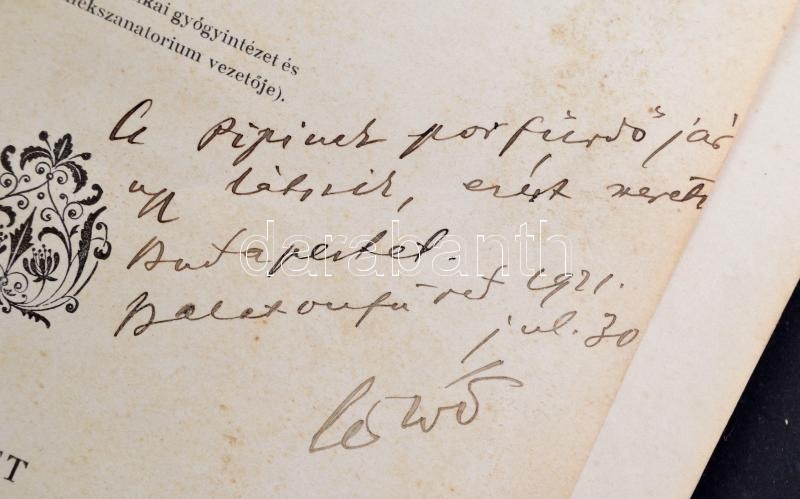 kai gyógyintézet és
ekszanatorium vezetője).
A Pipinek porfürdő jár
ugy látszik, ezért szereti
Budapestet.
Balatonfüred 1921.
jul. 30
darabanth
ET